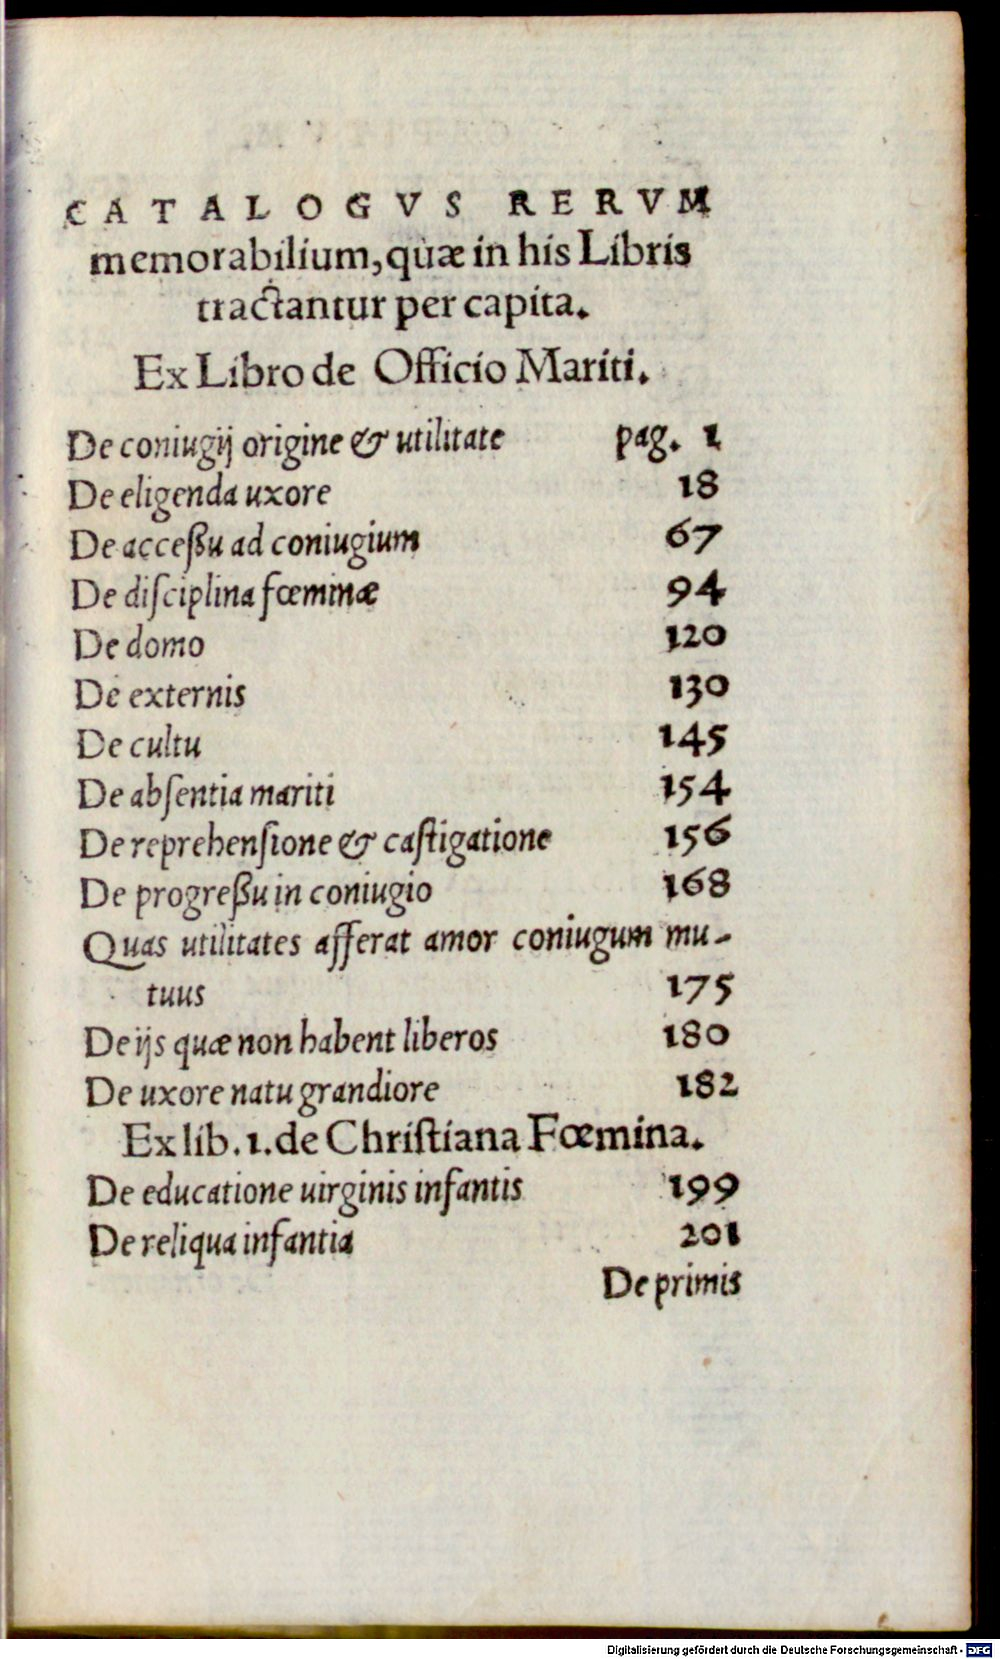 CATALOGVS RERVM
memorabilium, quæ in his Libris
tractantur per capita.
Ex Libro de Officio Mariti.
De coniugij origine & utilitate pag. 1
De eligenda uxore 18
De acceßu ad coniugium 67
De diſciplina fœminæ 94
De domo 120
De externis 130
De cultu 145
De abſentia mariti 154
De reprehenſione & caſtigatione 156
De progreßu in coniugio 168
Quas utilitates afferat amor coniugum mu-
tuus 175
De ijs quæ non habent liberos 180
De uxore natu grandiore 182
Ex lib. 1. de Chriſtiana Fœmina.
De educatione uirginis infantis 199
De reliqua infantia 201
De primis
Digitalisierung gefördert durch die Deutsche Forschungsgemeinschaft - DFG